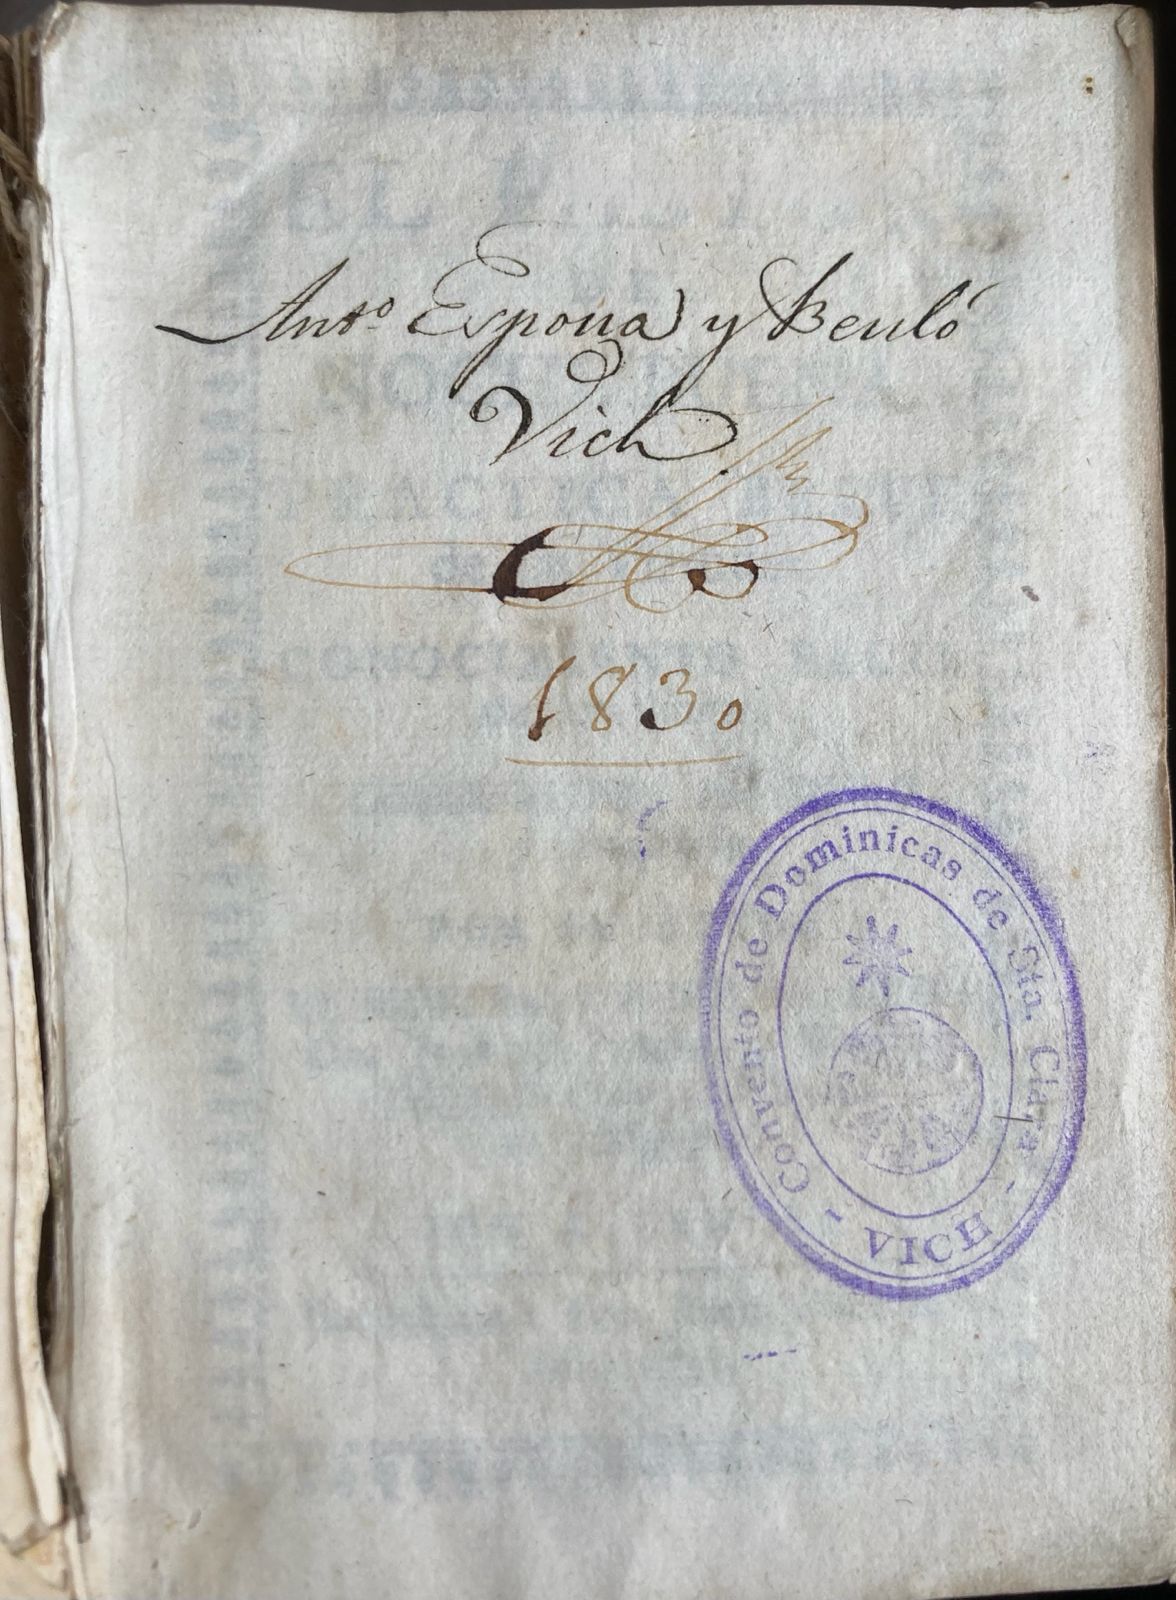 Antº Espona y Beuló
Vich
1830
Convento de Dominicas de Sta. Clara
- VICH -